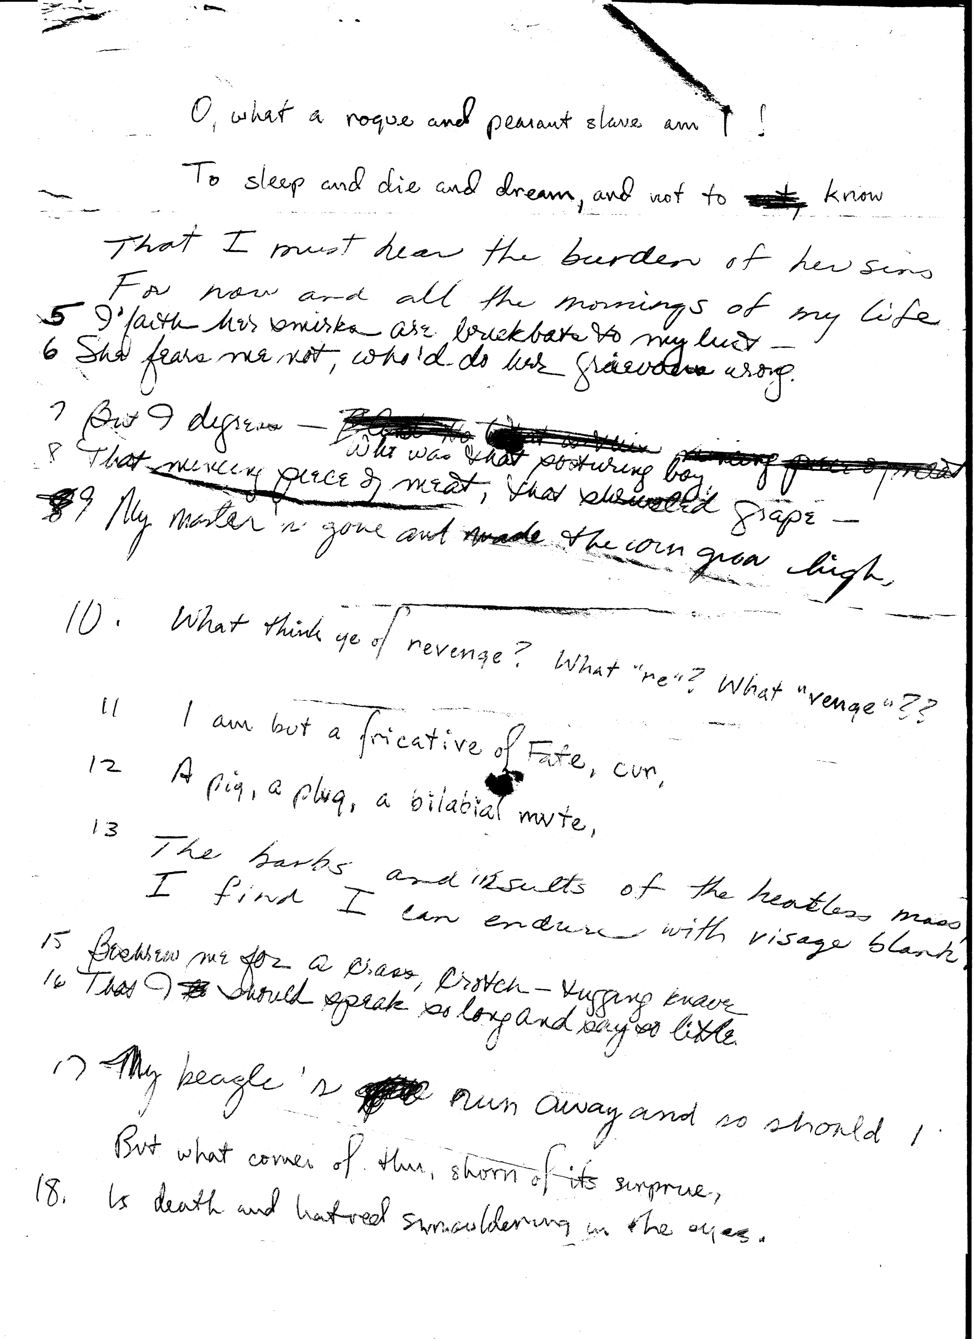 O, what a rogue and peasant slave am I!
To sleep and die and dream, and not to know
That I must hear the burden of her sins
For now and all the mornings of my life
5 I'faith her smirks are brickbats to my lust —
6 She fears me not, who'd do her grievous wrong.
7 But I digress —
Who was that posturing boy,
8 That mincing piece of meat, that shriveled grape —
9 My master is gone and made the corn grow high,
10. What think ye of revenge? What "re"? What "venge"??
11 I am but a fricative of Fate, cur,
12 A pig, a plug, a bilabial mute,
13 The barbs and insults of the heartless mass
I find I can endure with visage blank.
15 Beshrew me for a crass, crotch-tugging knave
16 That I should speak so long and say so little.
17 My beagle's run away and so should I
But what comes of this, shorn of its surprise,
18. Is death and hatred smouldering in the eyes.